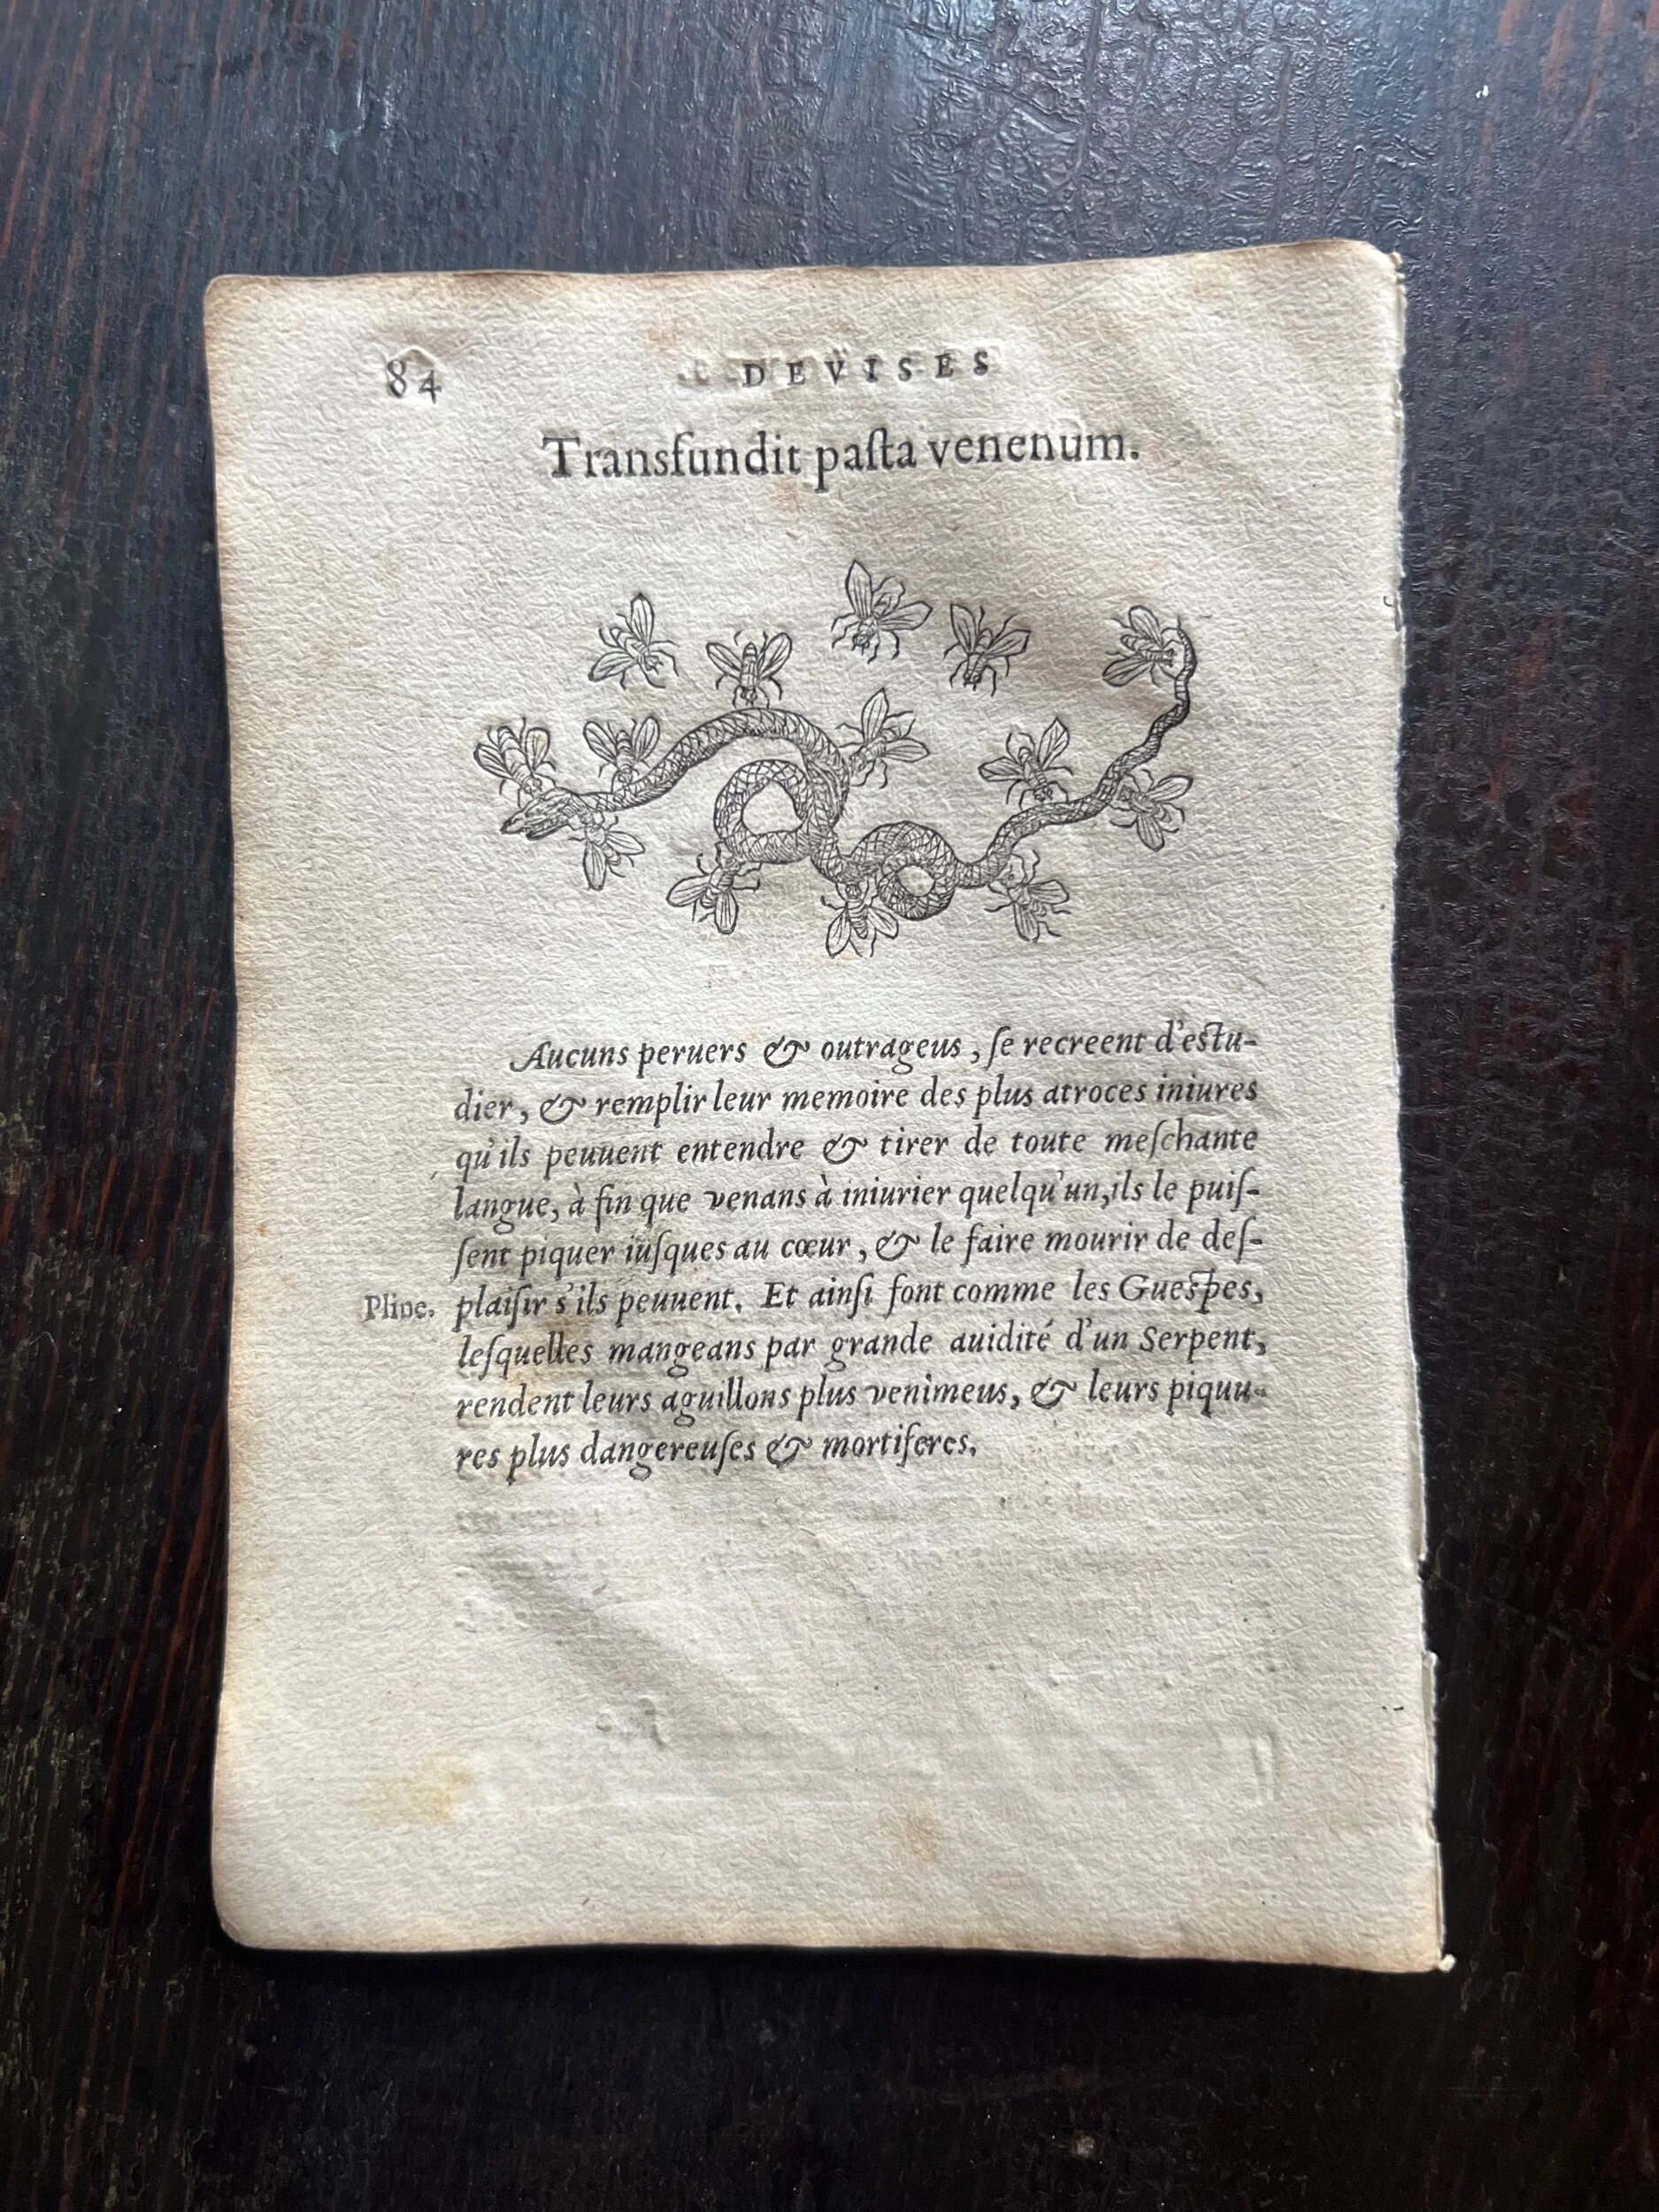 84 DEVISES
Transfundit paſta venenum.
Aucuns peruers & outrageus, ſe recreent d'eſtu-
dier, & remplir leur memoire des plus atroces iniures
qu'ils peuuent entendre & tirer de toute meſchante
langue, à fin que venans à iniurier quelqu'un, ils le puiſ-
ſent piquer iuſques au cœur, & le faire mourir de deſ-
Pline. plaiſir s'ils peuuent. Et ainſi font comme les Gueſpes,
leſquelles mangeans par grande auidité d'un Serpent,
rendent leurs aguillons plus venimeus, & leurs piquu-
res plus dangereuſes & mortiferes.